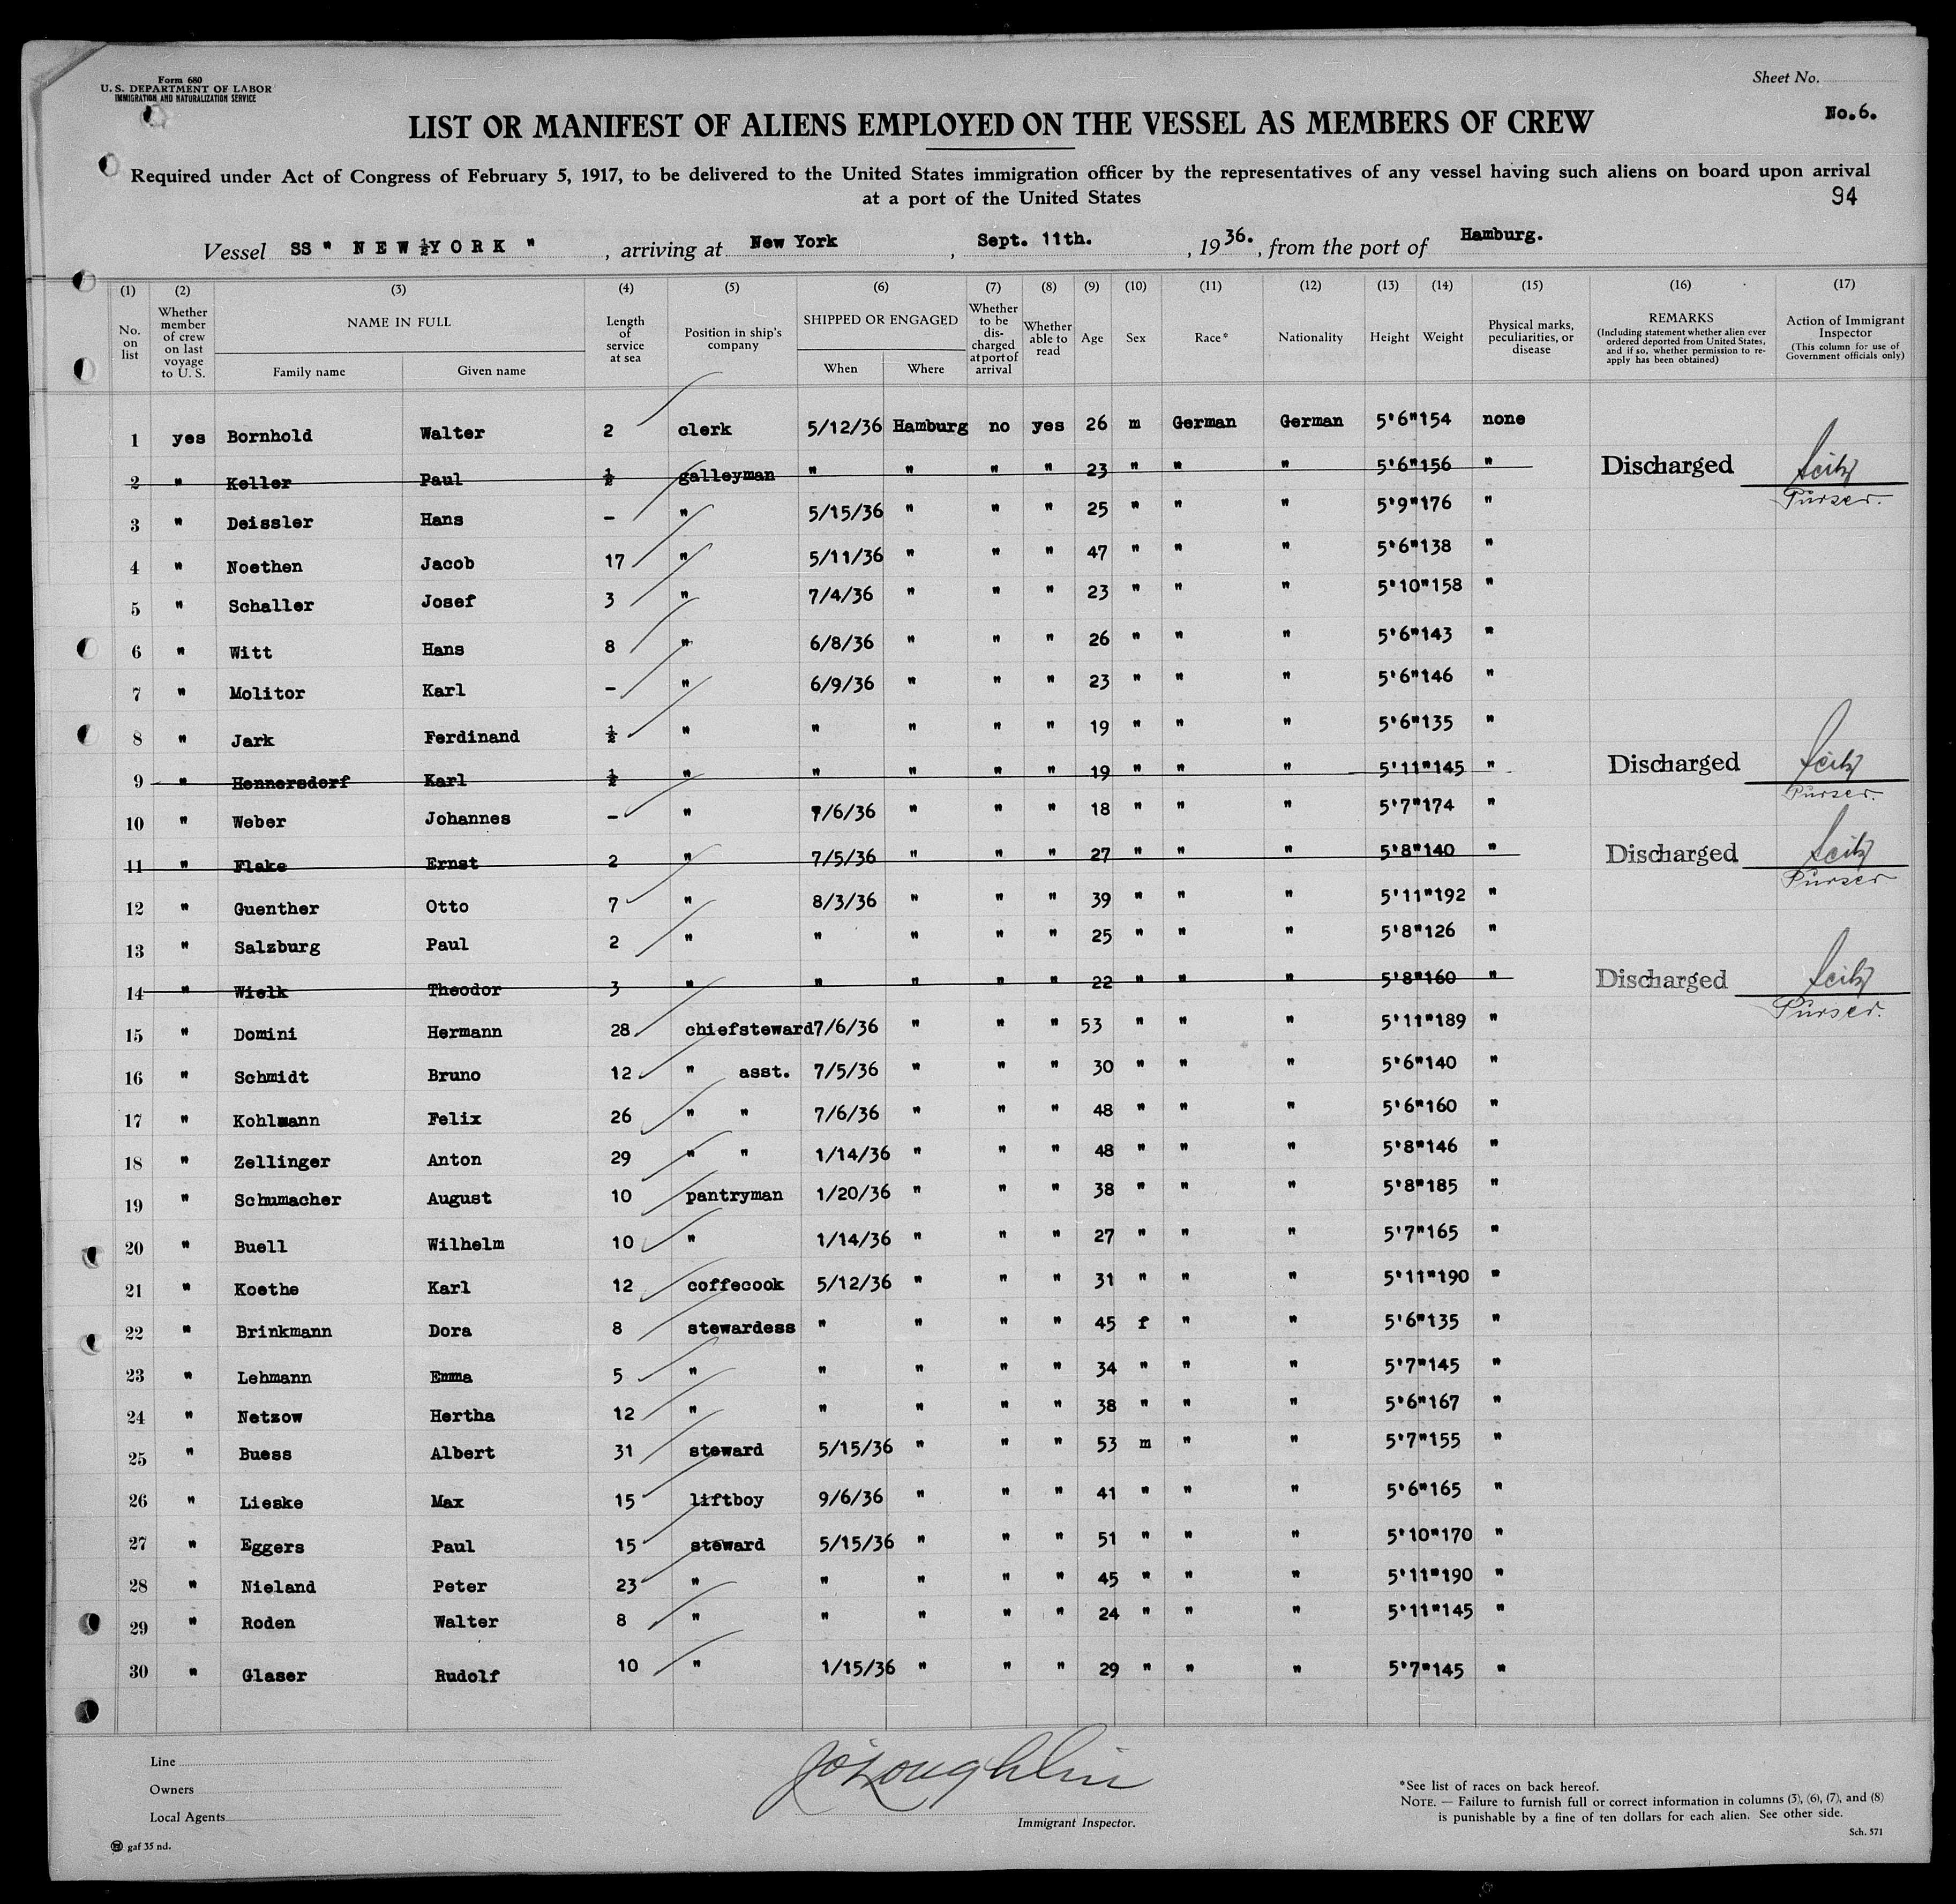 Form 680
U. S. DEPARTMENT OF LABOR
IMMIGRATION AND NATURALIZATION SERVICE
Sheet No.
No.6.
LIST OR MANIFEST OF ALIENS EMPLOYED ON THE VESSEL AS MEMBERS OF CREW
Required under Act of Congress of February 5, 1917, to be delivered to the United States immigration officer by the representatives of any vessel having such aliens on board upon arrival
at a port of the United States
94
Vessel SS " N E W ½Y O R K " , arriving at New York , Sept. 11th. , 1936. , from the port of Hamburg.
(1) (2) (3) (4) (5) (6) (7) (8) (9) (10) (11) (12) (13) (14) (15) (16) (17)
No. on list Whether member of crew on last voyage to U. S. NAME IN FULL Family name Given name Length of service at sea Position in ship's company SHIPPED OR ENGAGED When Where Whether to be discharged at port of arrival Whether able to read Age Sex Race* Nationality Height Weight Physical marks, peculiarities, or disease REMARKS (Including statement whether alien ever ordered deported from United States, and if so, whether permission to reapply has been obtained) Action of Immigrant Inspector (This column for use of Government officials only)
1 yes Bornhold Walter 2 clerk 5/12/36 Hamburg no yes 26 m German German 5'6" 154 none
2 " Keller Paul ½ galleyman " " " " 23 " " " 5'6" 156 " Discharged Seitz Purser.
3 " Deissler Hans - " 5/15/36 " " " 25 " " " 5'9" 176 "
4 " Noethen Jacob 17 " 5/11/36 " " " 47 " " " 5'6" 138 "
5 " Schaller Josef 3 " 7/4/36 " " " 23 " " " 5'10" 158 "
6 " Witt Hans 8 " 6/8/36 " " " 26 " " " 5'6" 143 "
7 " Molitor Karl - " 6/9/36 " " " 23 " " " 5'6" 146 "
8 " Jark Ferdinand ½ " " " " " 19 " " " 5'6" 135 "
9 " Hennersdorf Karl ½ " " " " " 19 " " " 5'11" 145 " Discharged Seitz Purser.
10 " Weber Johannes - " 7/6/36 " " " 18 " " " 5'7" 174 "
11 " Flake Ernst 2 " 7/5/36 " " " 27 " " " 5'8" 140 " Discharged Seitz Purser
12 " Guenther Otto 7 " 8/3/36 " " " 39 " " " 5'11" 192 "
13 " Salzburg Paul 2 " " " " " 25 " " " 5'8" 126 "
14 " Wielk Theodor 3 " " " " " 22 " " " 5'8" 160 " Discharged Seitz Purser.
15 " Domini Hermann 28 chiefsteward 7/6/36 " " " 53 " " " 5'11" 189 "
16 " Schmidt Bruno 12 " asst. 7/5/36 " " " 30 " " " 5'6" 140 "
17 " Kohlmann Felix 26 " " 7/6/36 " " " 48 " " " 5'6" 160 "
18 " Zellinger Anton 29 " " 1/14/36 " " " 48 " " " 5'8" 146 "
19 " Schumacher August 10 pantryman 1/20/36 " " " 38 " " " 5'8" 185 "
20 " Buell Wilhelm 10 " 1/14/36 " " " 27 " " " 5'7" 165 "
21 " Koethe Karl 12 coffecook 5/12/36 " " " 31 " " " 5'11" 190 "
22 " Brinkmann Dora 8 stewardess " " " " 45 f " " 5'6" 135 "
23 " Lehmann Emma 5 " " " " " 34 " " " 5'7" 145 "
24 " Netzow Hertha 12 " " " " " 38 " " " 5'6" 167 "
25 " Buess Albert 31 steward 5/15/36 " " " 53 m " " 5'7" 155 "
26 " Lieske Max 15 liftboy 9/6/36 " " " 41 " " " 5'6" 165 "
27 " Eggers Paul 15 steward 5/15/36 " " " 51 " " " 5'10" 170 "
28 " Nieland Peter 23 " " " " " 45 " " " 5'11" 190 "
29 " Roden Walter 8 " " " " " 24 " " " 5'11" 145 "
30 " Glaser Rudolf 10 " 1/15/36 " " " 29 " " " 5'7" 145 "
Line
Owners
Local Agents
JO'Loughlin
Immigrant Inspector.
*See list of races on back hereof.
NOTE. — Failure to furnish full or correct information in columns (3), (6), (7), and (8)
is punishable by a fine of ten dollars for each alien. See other side.
gaf 35 nd.
Sch. 571